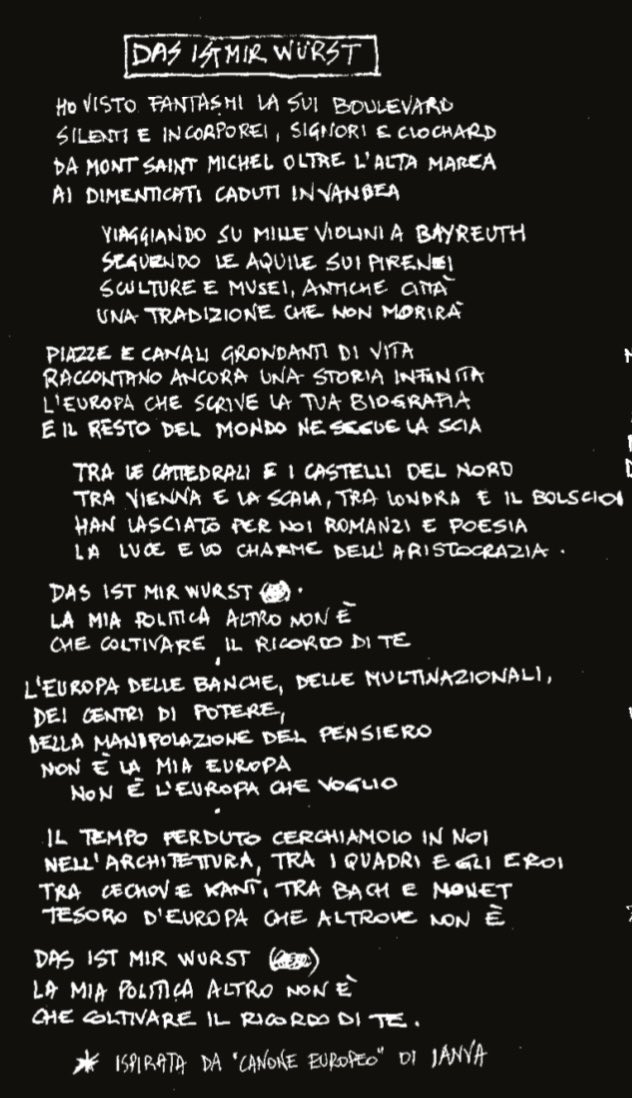 DAS IST MIR WURST
HO VISTO FANTASMI LA SUI BOULEVARD
SILENTI E INCORPOREI, SIGNORI E CLOCHARD
DA MONT SAINT MICHEL OLTRE L'ALTA MAREA
AI DIMENTICATI CADUTI IN VANDEA
VIAGGIANDO SU MILLE VIOLINI A BAYREUTH
SEGUENDO LE AQUILE SUI PIRENEI
SCULTURE E MUSEI, ANTICHE CITTÀ
UNA TRADIZIONE CHE NON MORIRÀ
PIAZZE E CANALI GRONDANTI DI VITA
RACCONTANO ANCORA UNA STORIA INFINITA
L'EUROPA CHE SCRIVE LA TUA BIOGRAFIA
E IL RESTO DEL MONDO NE SEGUE LA SCIA
TRA LE CATTEDRALI E I CASTELLI DEL NORD
TRA VIENNA E LA SCALA, TRA LONDRA E IL BOLSCIOI
HAN LASCIATO PER NOI ROMANZI E POESIA
LA LUCE E LO CHARME DELL'ARISTOCRAZIA.
DAS IST MIR WURST
LA MIA POLITICA ALTRO NON È
CHE COLTIVARE IL RICORDO DI TE
L'EUROPA DELLE BANCHE, DELLE MULTINAZIONALI,
DEI CENTRI DI POTERE,
DELLA MANIPOLAZIONE DEL PENSIERO
NON È LA MIA EUROPA
NON È L'EUROPA CHE VOGLIO
IL TEMPO PERDUTO CERCHIAMOLO IN NOI
NELL'ARCHITETTURA, TRA I QUADRI E GLI EROI
TRA CECHOV E KANT, TRA BACH E MONET
TESORO D'EUROPA CHE ALTROVE NON È
DAS IST MIR WURST
LA MIA POLITICA ALTRO NON È
CHE COLTIVARE IL RICORDO DI TE.
* ISPIRATA DA "CANONE EUROPEO" DI IANVA